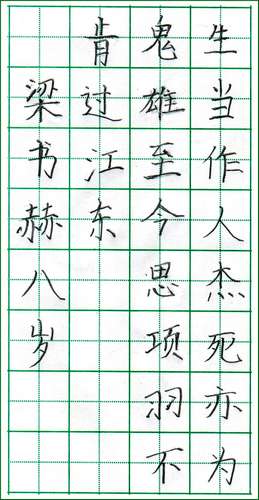 生当作人杰死亦为
鬼雄至今思项羽不
肯过江东
梁书赫八岁